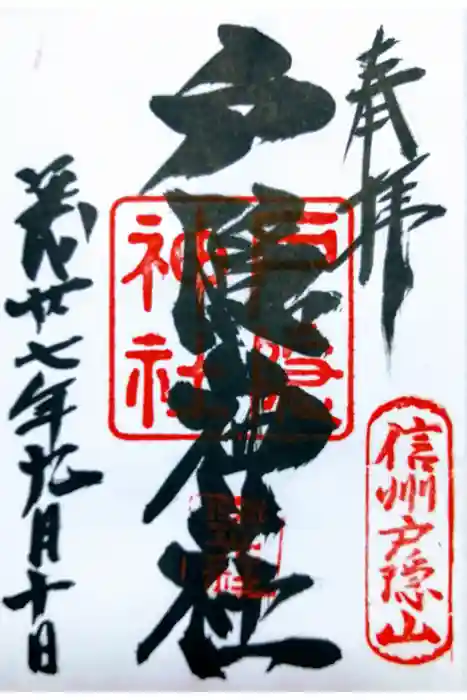 奉拝
信州戸隠山
戸隠神社
戸隠神社
廿七年九月十日